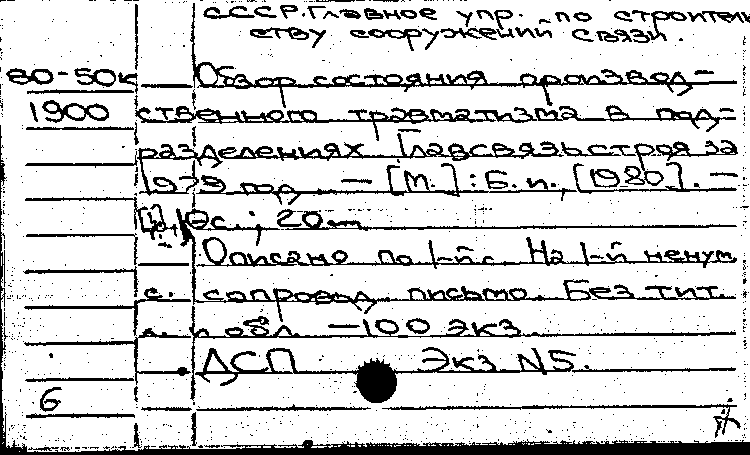 СССР. Главное упр. по строитель
ству сооружений связи.
80-50к Обзор состояния производ-
1900 ственного травматизма в под-
разделениях Главсвязьстроя за
1979 год. — [М.]: Б. и., [1980]. —
с.; 20 см
Описано по 1-й с. На 1-й ненум.
с. сопровод. письмо. Без тит.
л. и обл. — 100 экз.
ДСП Экз. N5.
6